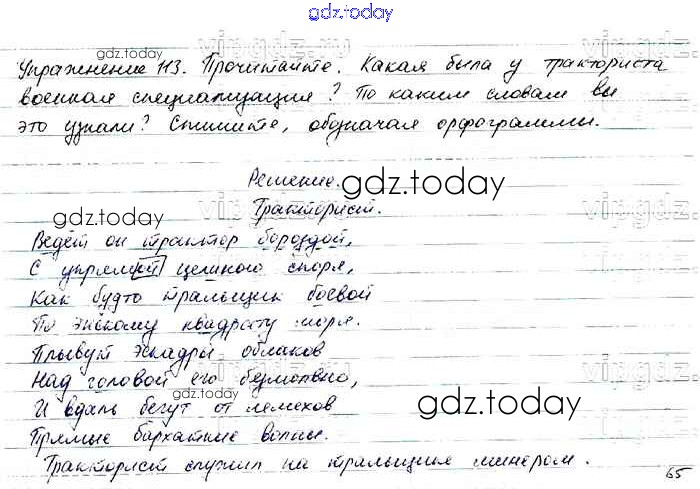 gdz.today
gdz.today
Упражнение 113. Прочитайте. Какая была у тракториста
военная специализация? По каким словам вы
это узнали? Спишите, обозначая орфограммы.
Решение.
gdz.today
gdz.today
Тракторист.
Ведёт он трактор бороздой,
С упрямой целиною споря,
Как будто тральщик боевой
По энскому квадрату моря.
Плывут эскадры облаков
Над головой его безмолвно,
gdz.today
И вдаль бегут от лемехов
gdz.today
Прямые бархатные волны.
Тракторист служил на тральщике минёром.
65